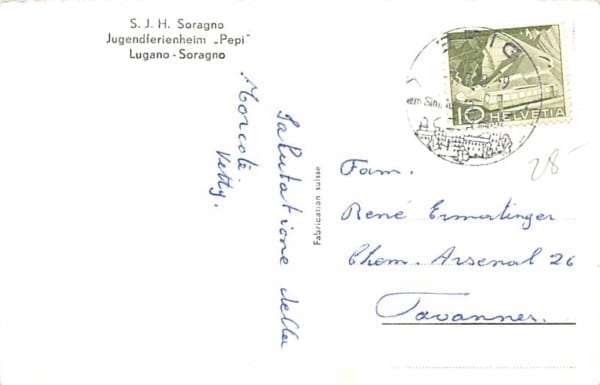 S. J. H. Soragno
Jugendferienheim „Pepi"
Lugano - Soragno
Salutatione della
Morcotè
Vetty.
Fabrication suisse
BRIG
10 HELVETIA
28-
Fam.
René Ermatinger
Chem. Arsenal 26
Tavannes.